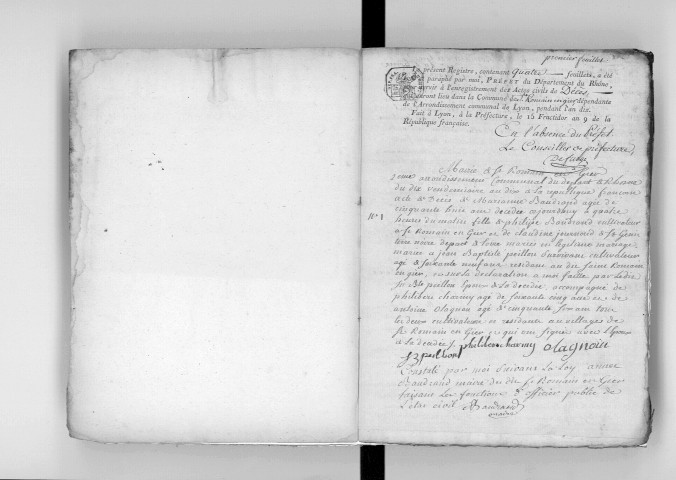 premier feuillet
Le présent Registre, contenant quatre feuillets, a été
paraphé par moi, PRÉFET du Département du Rhône,
servir à l'enregistrement des Actes civils de Décès,
auront lieu dans la Commune de St Romain en gier dépendante
de l'Arrondissement communal de Lyon, pendant l'an dix.
Fait à Lyon, à la Préfecture, le 15 Fructidor an 9 de la
République française.
En l'absence du Préfet
Le Conseiller de préfecture,
Mairie de St Romain en Gier
arrondissement Communal du depart du Rhone
du dix vendemiaire an dix de la republique francaise
acte de Deces de Marianne Baudrand agée de
cinquante huit ans decedée aujourdhuy a quatre
N° 1
heures du matin fille de philipe Baudrand cultivateur
a St Romain en Gier et de claudine
depart de Loire mariés en legitime mariage
mariée a jean Baptiste peillon cultivateur
agé de soixante ans residant au dit saint Romain
en gier, sur la declaration a moi faitte par ledit
peillon Epoux de la decedée, accompagné de
philibert charmy agé de soixante cinq ans et de
antoine Olagnon agé de cinquante ans tous
les deux cultivateurs et residants au village de
St Romain en Gier et qui ont signés avec l'Epoux
de la decedée
philibert charmy olagnion
peillont
Constaté par moi suivant la loy
Baudrand maire du dit St Romain en Gier
faisant les fonctions d'officier public de
l'etat civil Baudrand
maire